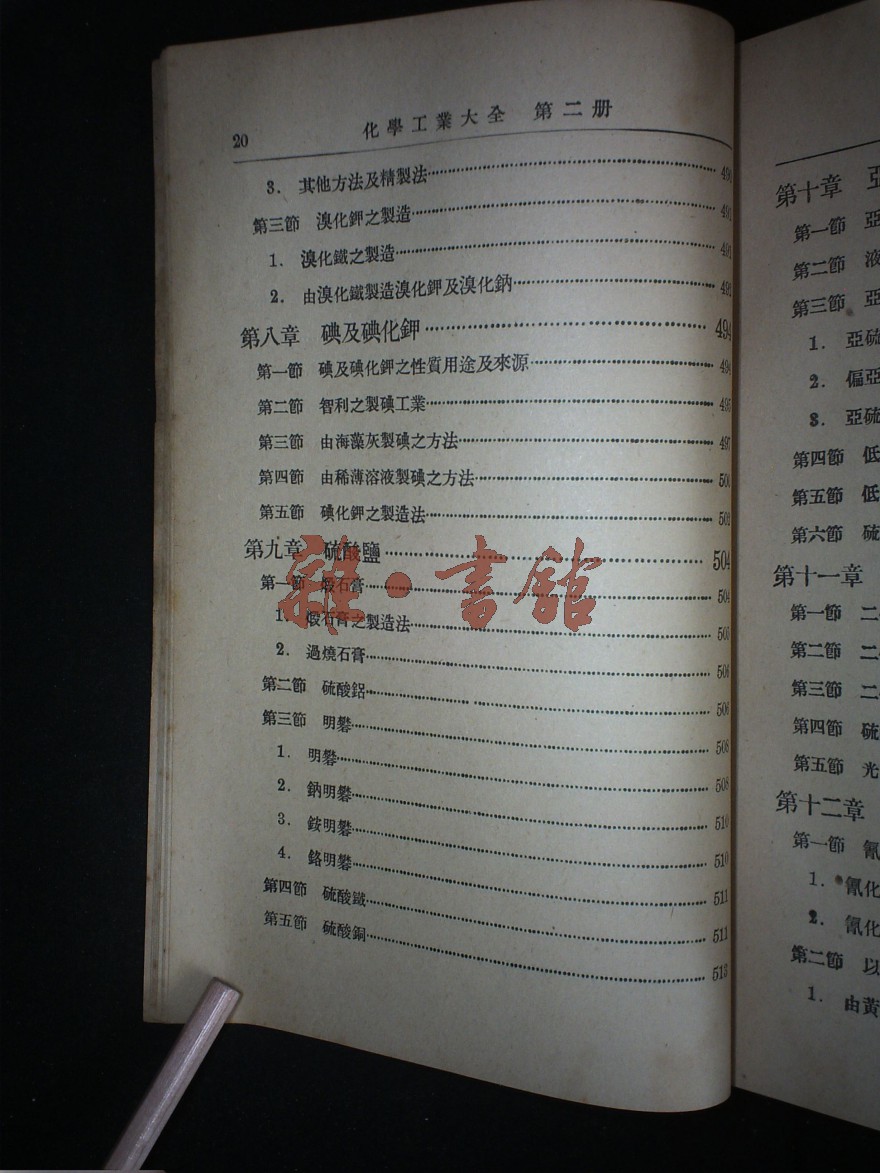 20 化學工業大全 第二册
3. 其他方法及精製法 490
第三節 溴化鉀之製造 491
1. 溴化鐵之製造 491
2. 由溴化鐵製造溴化鉀及溴化鈉 492
第八章 碘及碘化鉀 494
第一節 碘及碘化鉀之性質用途及來源 494
第二節 智利之製碘工業 495
第三節 由海藻灰製碘之方法 497
第四節 由稀薄溶液製碘之方法 500
第五節 碘化鉀之製造法 502
第九章 硫酸鹽 504
第一節 煅石膏 504
1. 煅石膏之製造法 505
2. 過燒石膏 506
第二節 硫酸鋁 506
第三節 明礬 508
1. 明礬 508
2. 鈉明礬 510
3. 銨明礬 510
4. 鉻明礬 511
第四節 硫酸鐵 511
第五節 硫酸銅 513
雜·書館
第十章 亞
第一節 亞
第二節 液
第三節 亞
1. 亞硫
2. 偏亞
3. 亞硫
第四節 低
第五節 低
第六節 硫
第十一章
第一節 二
第二節 二
第三節 二
第四節 硫
第五節 光
第十二章
第一節 氰
1. 氰化
2. 氰化
第二節 以
1. 由黃